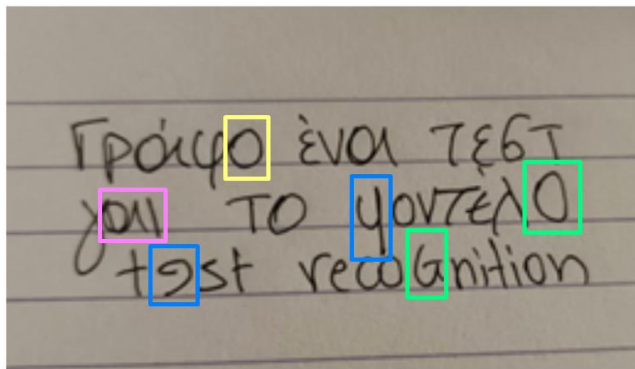 Γράφο ένα τεστ
για το μοντέλο
test recoGnition